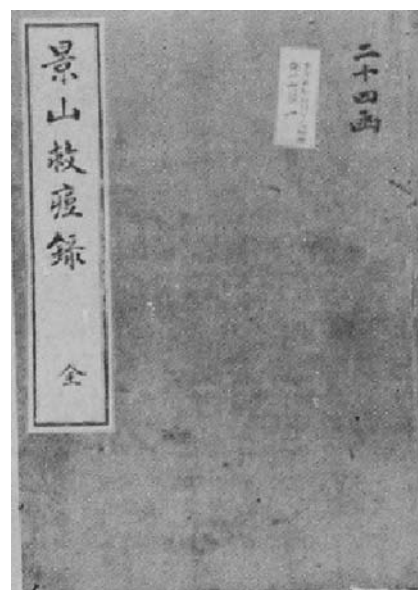 二十四函
景山救痘録
全